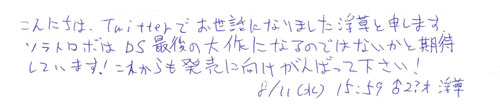 こんにちは、Twitterでお世話になりました浮草と申します。
ソラトロボはDS最後の大作になるのではないかと期待
しています!これからも発売に向けがんばって下さい!
8/11(水) 15:59 ♂23才 浮草